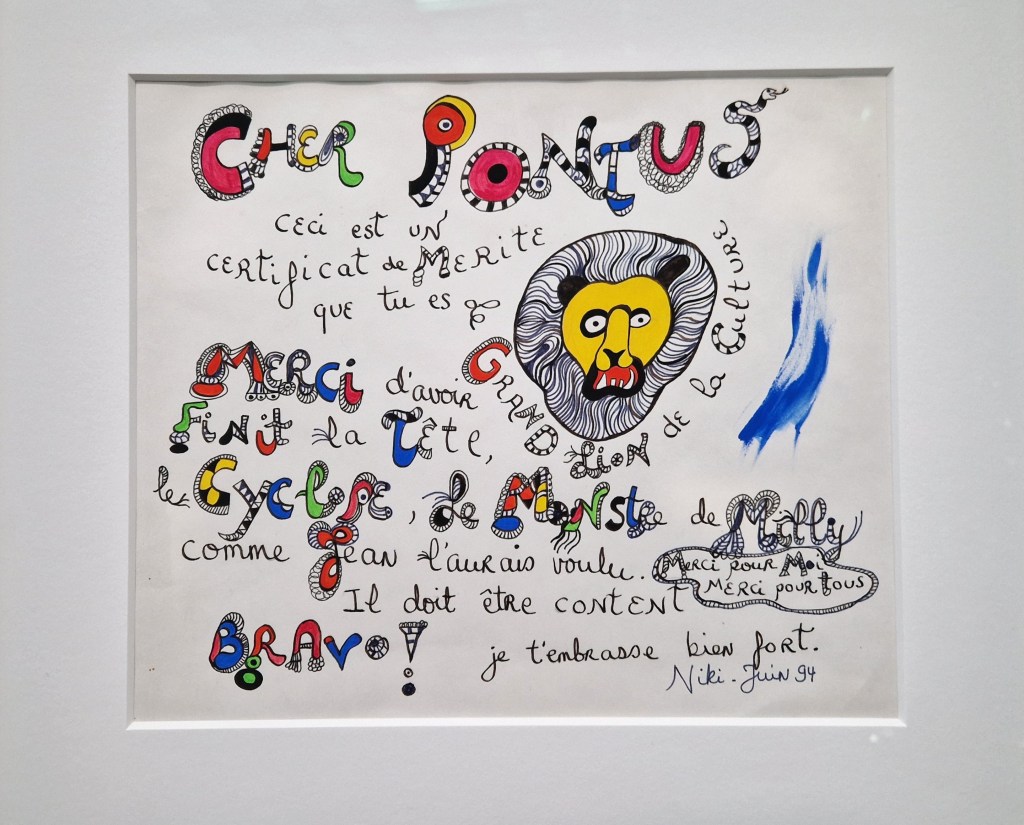 CHER PONTUS
CECI EST UN
CERTIFICAT de MERITE
que tu es
GRAND LION de la CULTURE
MERCI d'avoir
FINIT la TÊTE,
le CYCLOPE, Le MONSTRE de Milly
comme Jean l'aurais voulu.
MERCI POUR MOI
MERCI POUR TOUS
Il doit être CONTENT
BRAVO!
je t'embrasse bien fort.
Niki - Juin 94